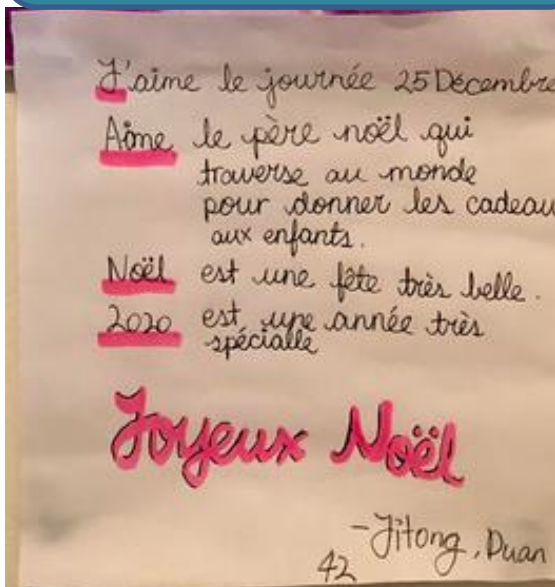 J'aime le journée 25 Décembre
Aime le père noël qui
traverse au monde
pour donner les cadeau
aux enfants.
Noël est une fête très belle.
2020 est une année très
spécialle
Joyeux Noël
-Jitong, Duan
42